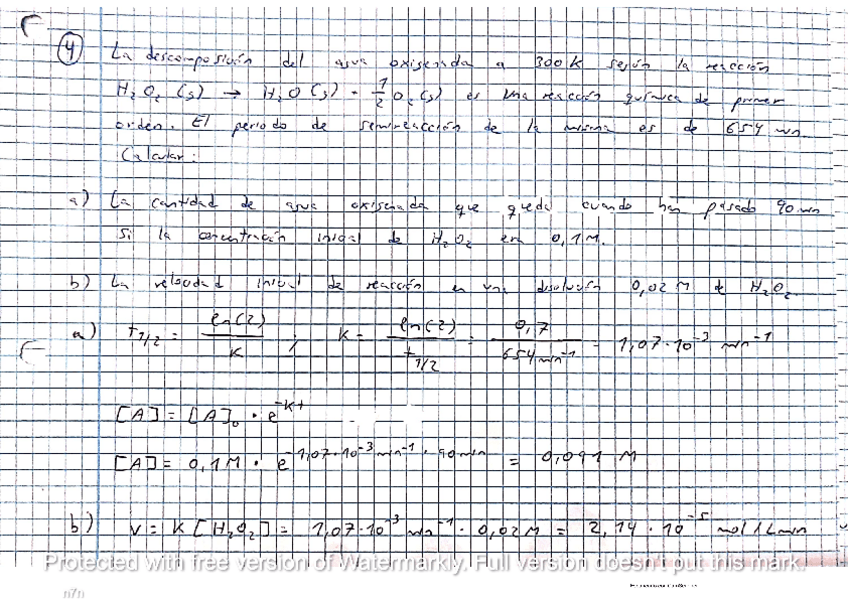 4 La descomposición del agua oxigenada a 300K según la reacción
H₂O₂ (g) → H₂O (g) + 1/2 O₂ (g) es una reacción química de primer
orden. El periodo de semireacción de la misma es de 654 min.
Calcular:
a) La cantidad de agua oxigenada que queda cuando han pasado 90 min
si la concentración inicial de H₂O₂ era 0,1M.
b) La velocidad inicial de reacción en una disolución 0,02 M de H₂O₂.
a) t1/2 = ln(2)/K ; K = ln(2)/t1/2 = 0,7/654 min⁻¹ = 1,07·10⁻³ min⁻¹
[A] = [A]₀ · e^-Kt
[A] = 0,1M · e^-1,07·10⁻³ min⁻¹ · 90min = 0,091 M
b) v = K [H₂O₂] = 1,07·10⁻³ min⁻¹ · 0,02M = 2,14 · 10⁻⁵ mol/L min
Protected with free version of Watermarkly. Full version doesn't put this mark.